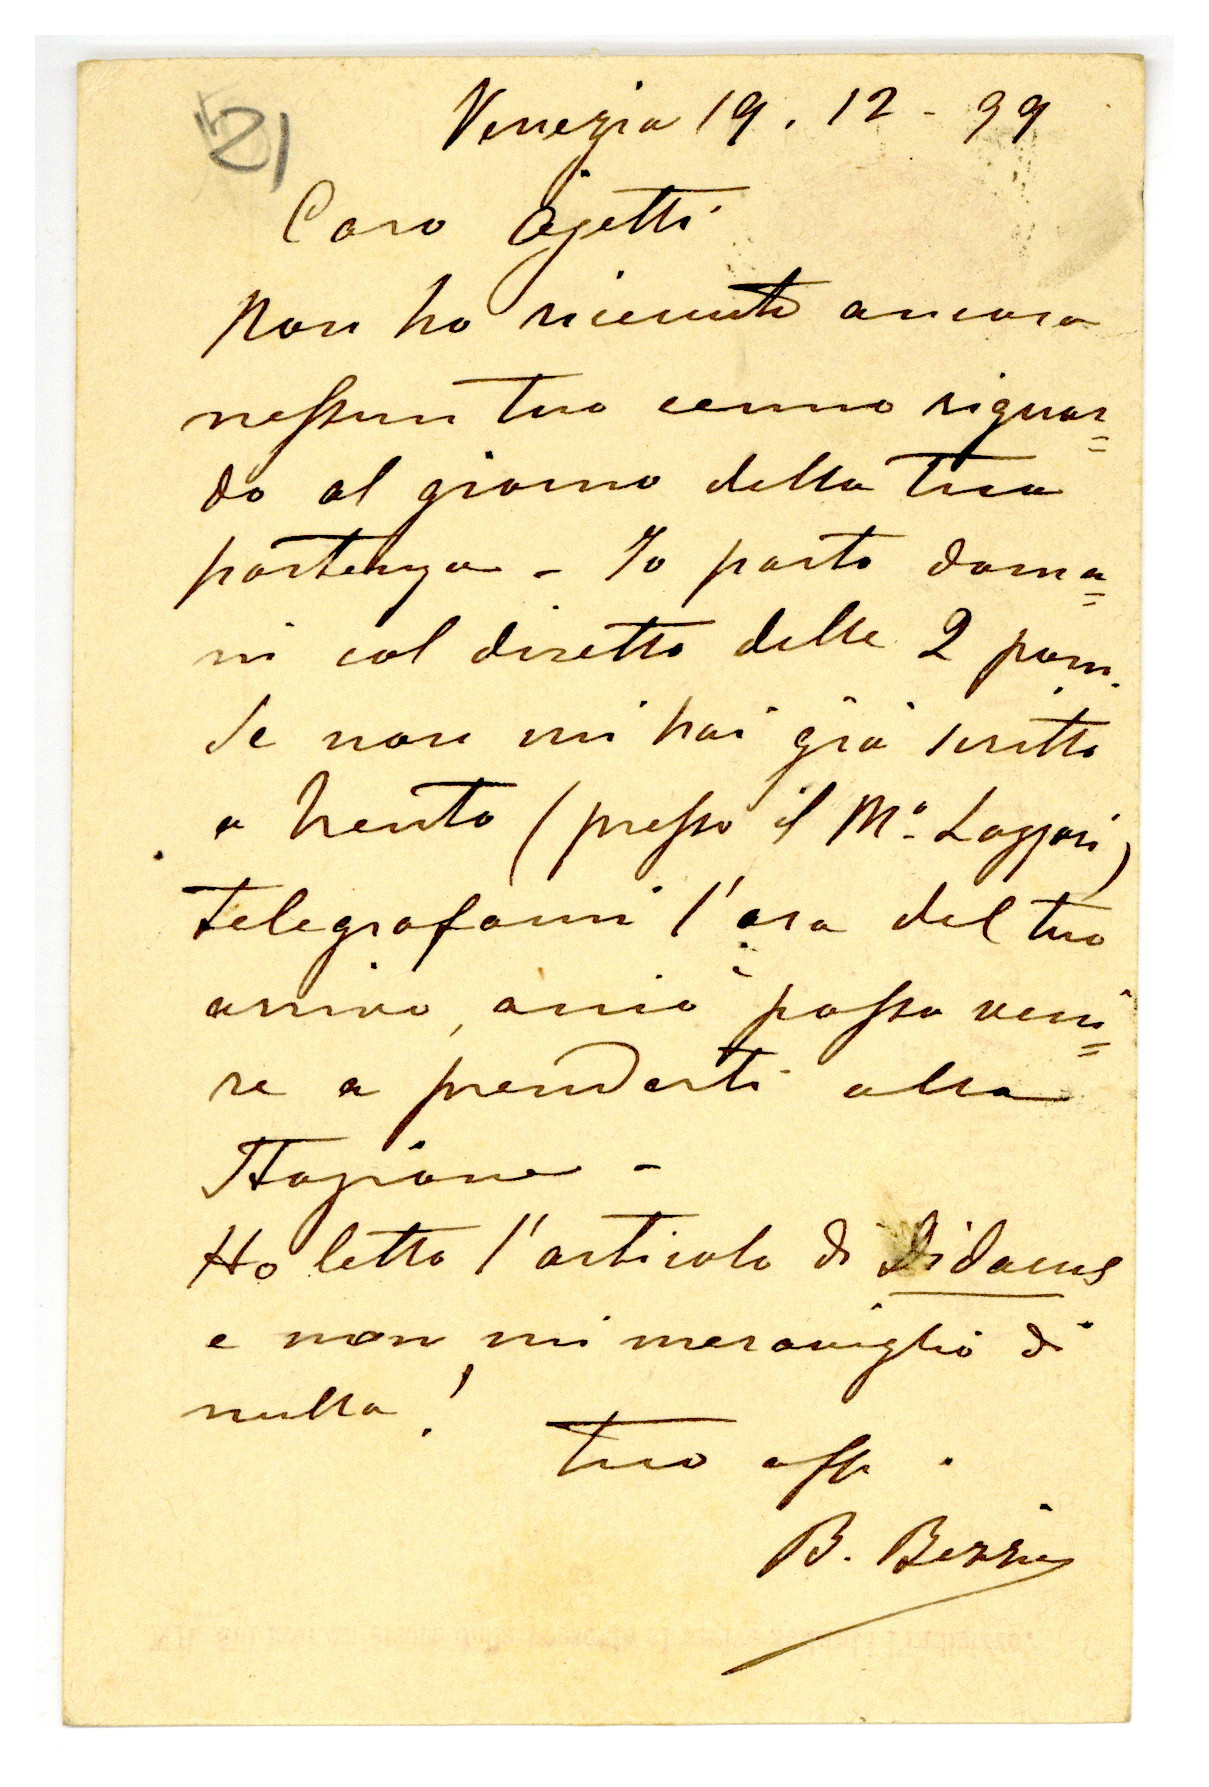 21
Venezia 19. 12 - 99
Caro Ojetti
Non ho ricevuto ancora
nessun tuo cenno riguar=
do al giorno della tua
partenza - Io parto doma=
ni col diretto delle 2 pom.
Se non mi hai già scritto
a Trento (presso il Mº. Lazzari)
telegrafami l'ora del tuo
arrivo, acciò possa veni=
re a prenderti alla
Stazione -
Ho letto l'articolo di Didacus
e non mi meraviglio di
nulla!
tuo aff.
B. Bezzi